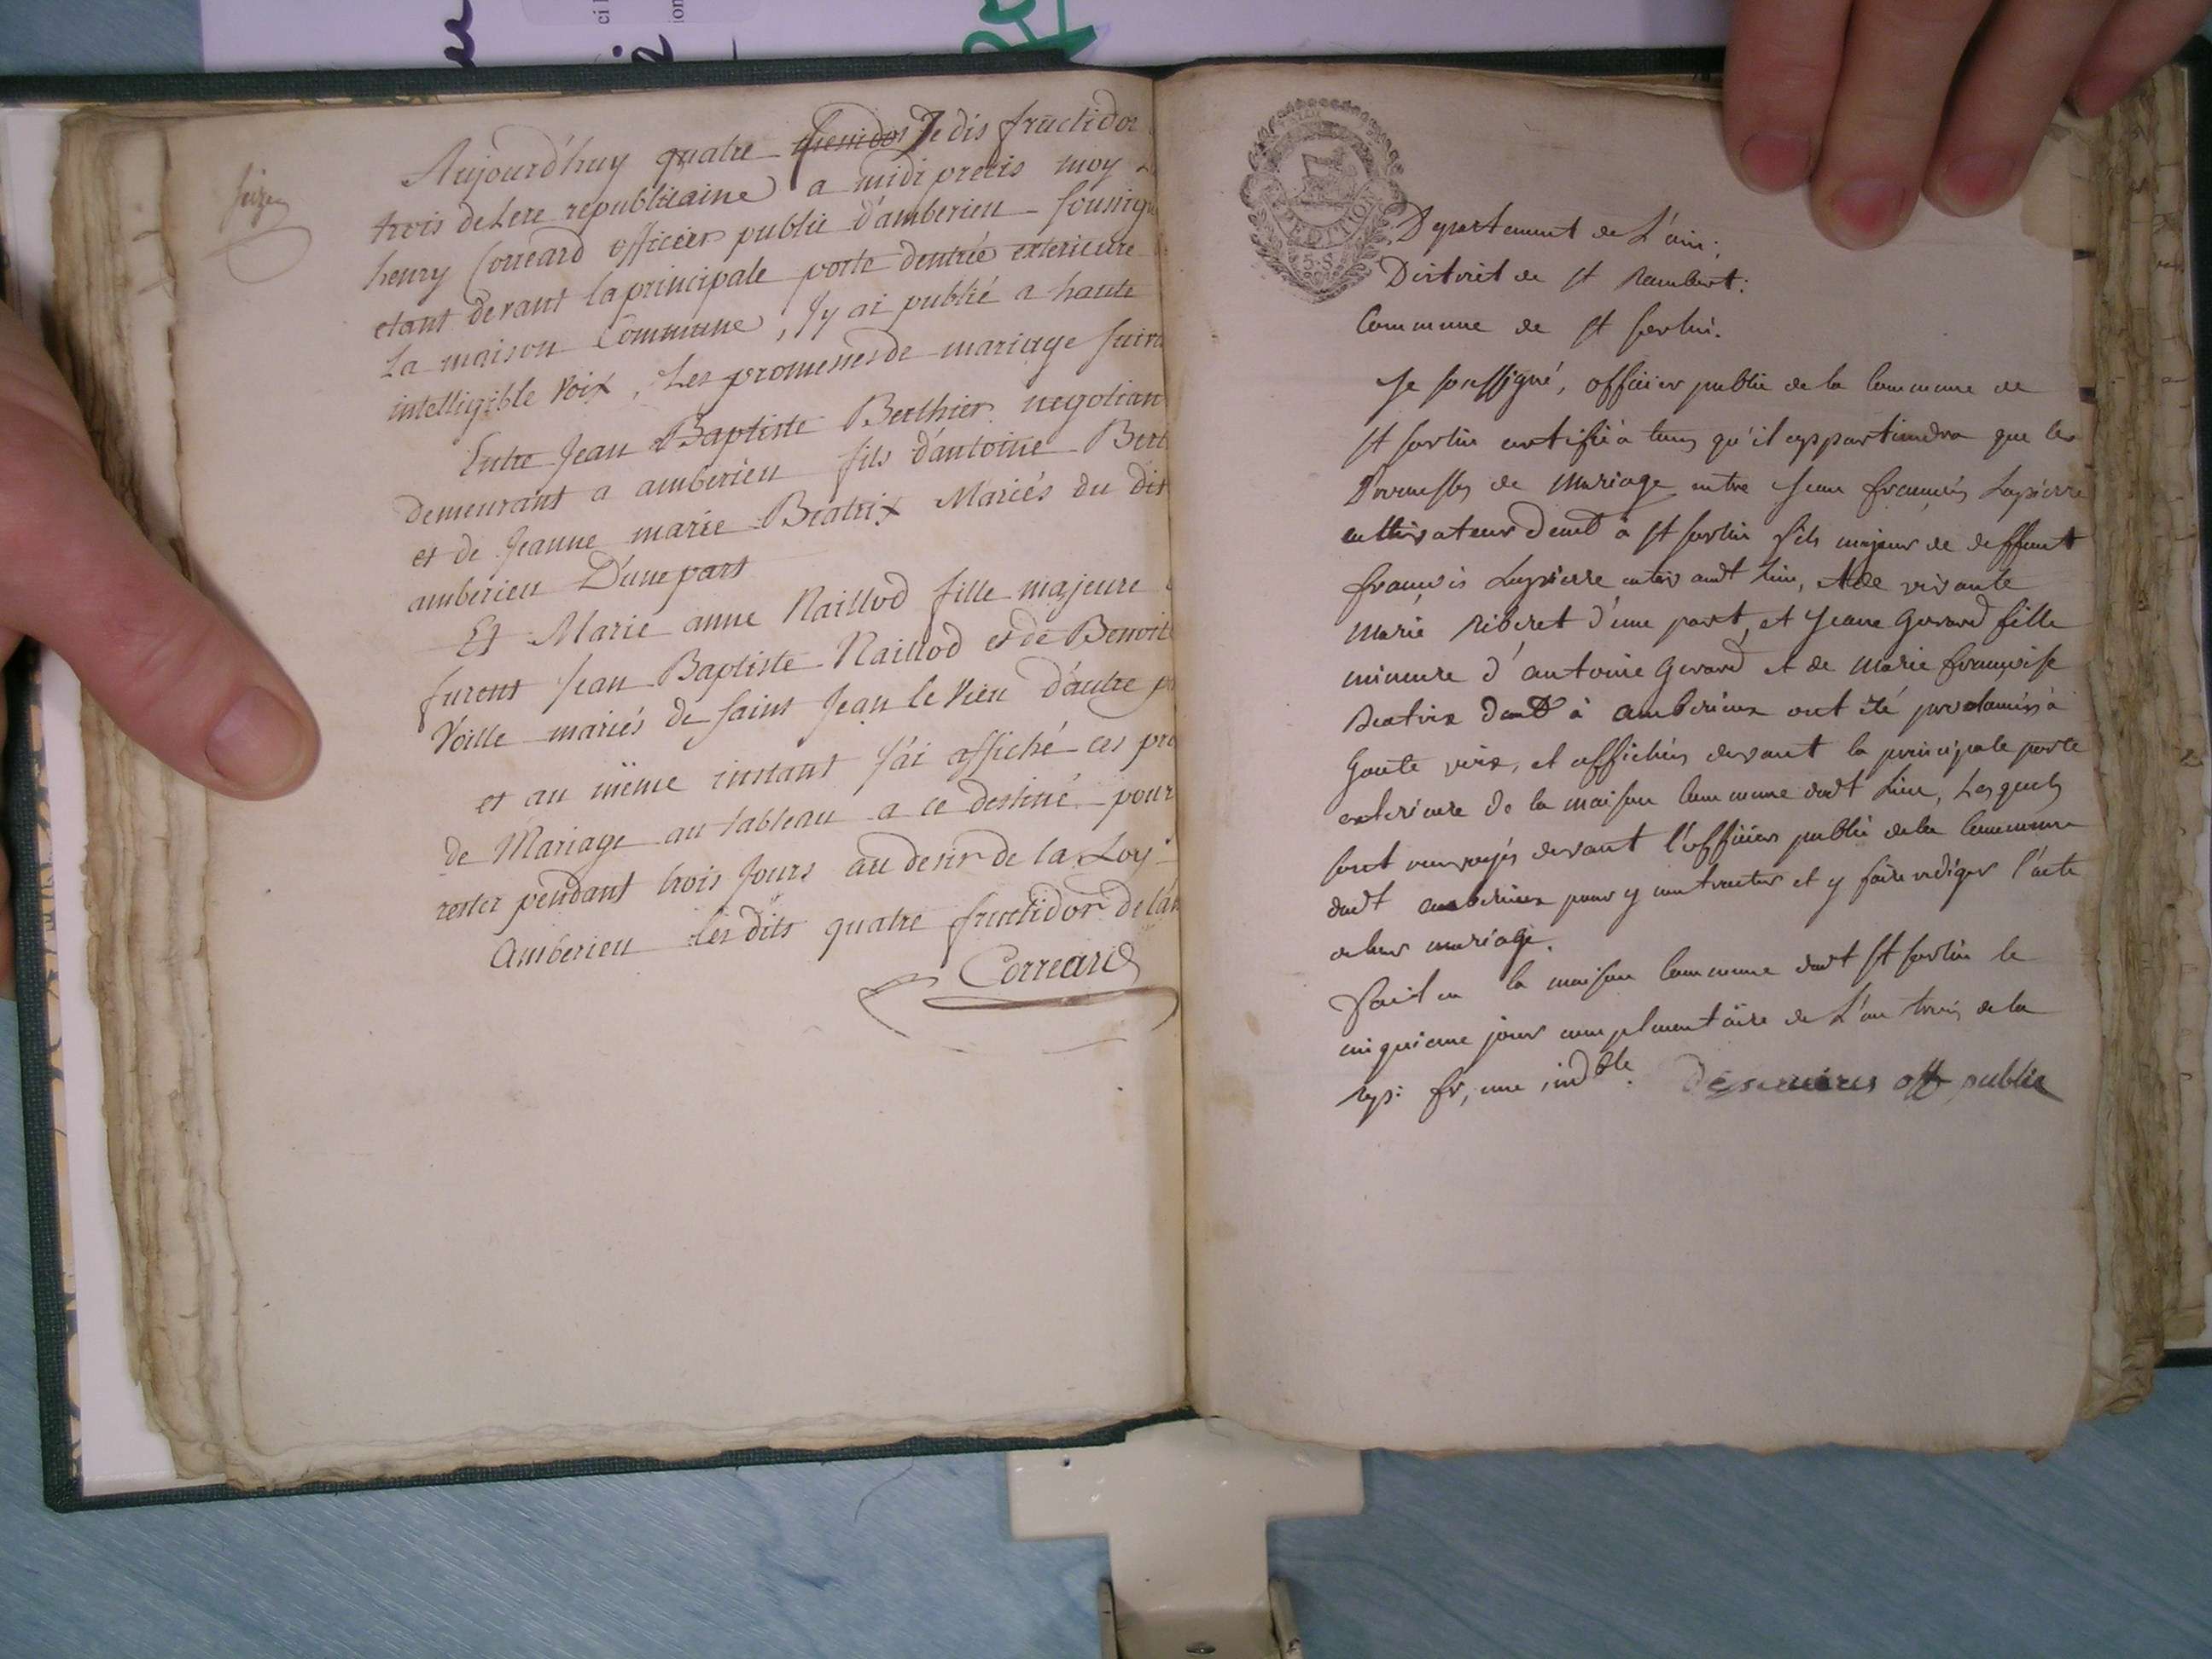 seize
Aujourd'huy quatre thermidor Je dis fructidor
trois de Lere republicaine a midi precis moy
henry Correard officier public d'amberieu soussig
etant devant la principale porte dentrée exterieure
La maison Commune, Jy ai publié a haute
intelligible voix, Les promesses de mariage suiva
Entre Jean Baptiste Berthier negotian
demeurant a amberieu fils d'antoine Bert
et de Jeanne marie Beatrix Mariés du dit
amberieu D'une part
Et Marie anne Naillod fille majeure
furent Jean Baptiste Naillod et de Benoit
Voille mariés de saint Jean le vieu d'autre p
et au même instant J'ai affiché ces pro
de Mariage au tableau a ce destiné pour
rester pendant trois Jours au desir de la Loy
Amberieu les dits quatre fructidor de lan
Correard
EXPEDITION
5.S.
Departement de L'ain:
District de st Rambert:
Commune de st sorlin.
Je soussigné, officier public de la commune de
st sorlin certifié à tous qu'il appartiendra que les
Promesses de Mariage entre Jean françois Lapierre
cultivateur demt à st sorlin fils majeur de deffunt
françois Lapierre dudt lieu, et de vivante
Marie Riberet d'une part, et Jeane Gerard fille
mineure d'antoine Gerard et de Marie françoise
Beatrix à amberieux ont été proclamés à
haute voix, et affichés devant la principale porte
exterieure de la maison commune dudt lieu, Lesquels
sont renvoyés devant l'officier public de la commune
dudt amberieux pour y contracter et y faire rediger l'acte
de leur mariage.
Fait en la maison commune dudt st sorlin le
cinquieme jour complementaire de L'an trois de la
rep: fr, une, indble.
off public